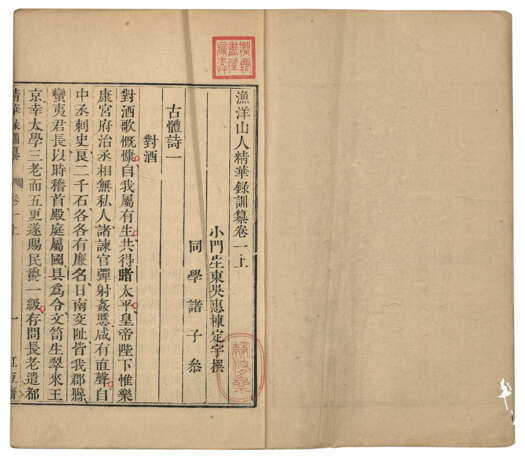 漁洋山人精華錄訓纂卷一上
小門生東吳惠棟定宇撰
同學諸子叅
古體詩一
對酒
對酒歌慨慷自我屬有生共得睹太平皇帝陛下惟樂
康宮府治丞相無私人諸諫官彈射姦慝咸有直聲自
中丞刺史良二千石各各有廉名日南交阯皆我郡縣
蠻夷君長以時稽首殿庭屬國具為令文笥生翠來王
京幸太學三老而五更遂賜民爵一級存問長老遣都
精華錄訓纂 卷一上 一 紅豆齋